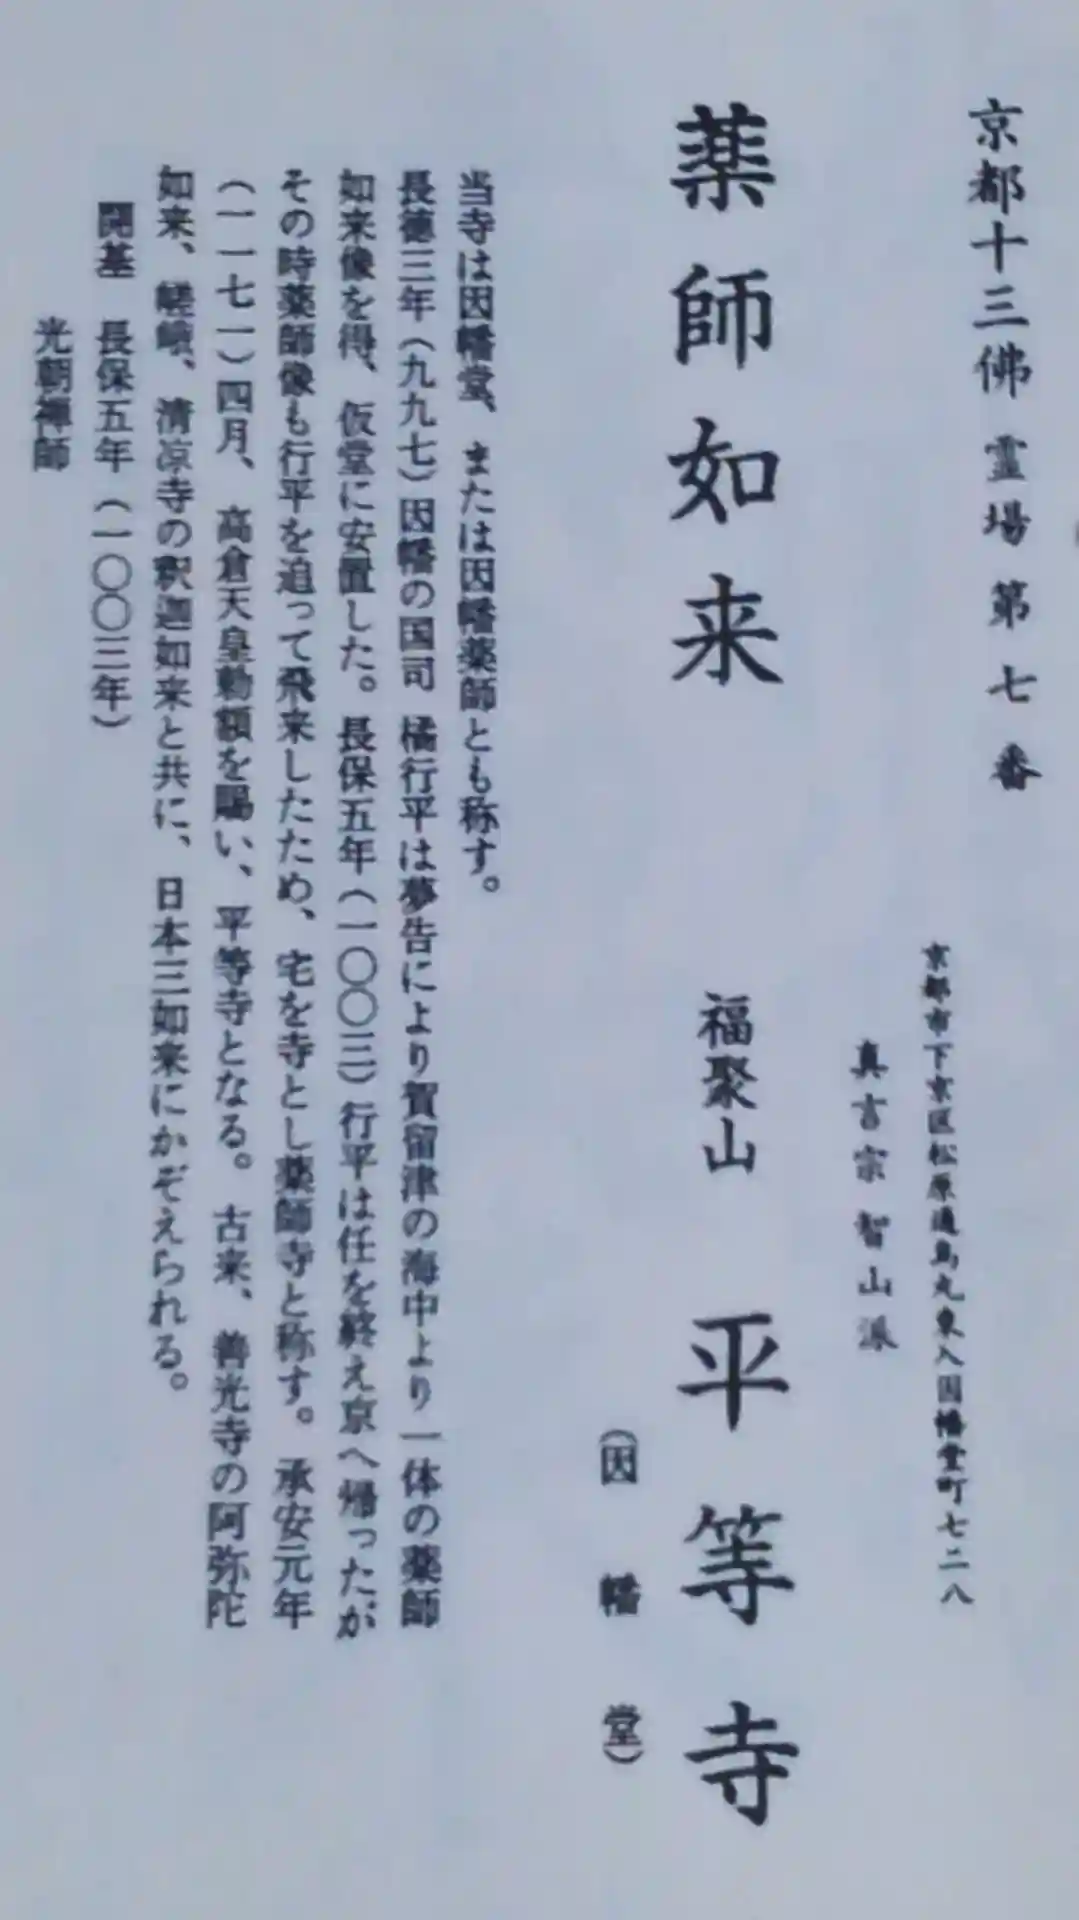 京都十三佛霊場第七番
京都市下京区松原通烏丸東入因幡堂町七二八
真言宗智山派
薬師如来 福聚山 平等寺
(因幡堂)
当寺は因幡堂、または因幡薬師とも称す。
長徳三年(九九七)因幡の国司 橘行平は夢告により賀留津の海中より一体の薬師
如来像を得、仮堂に安置した。長保五年(一〇〇三)行平は任を終え京へ帰ったが
その時薬師像も行平を追って飛来したため、宅を寺とし薬師寺と称す。承安元年
(一一七一)四月、高倉天皇勅額を賜い、平等寺となる。古来、善光寺の阿弥陀
如来、嵯峨、清凉寺の釈迦如来と共に、日本三如来にかぞえられる。
開基 長保五年(一〇〇三年)
光朝禅師